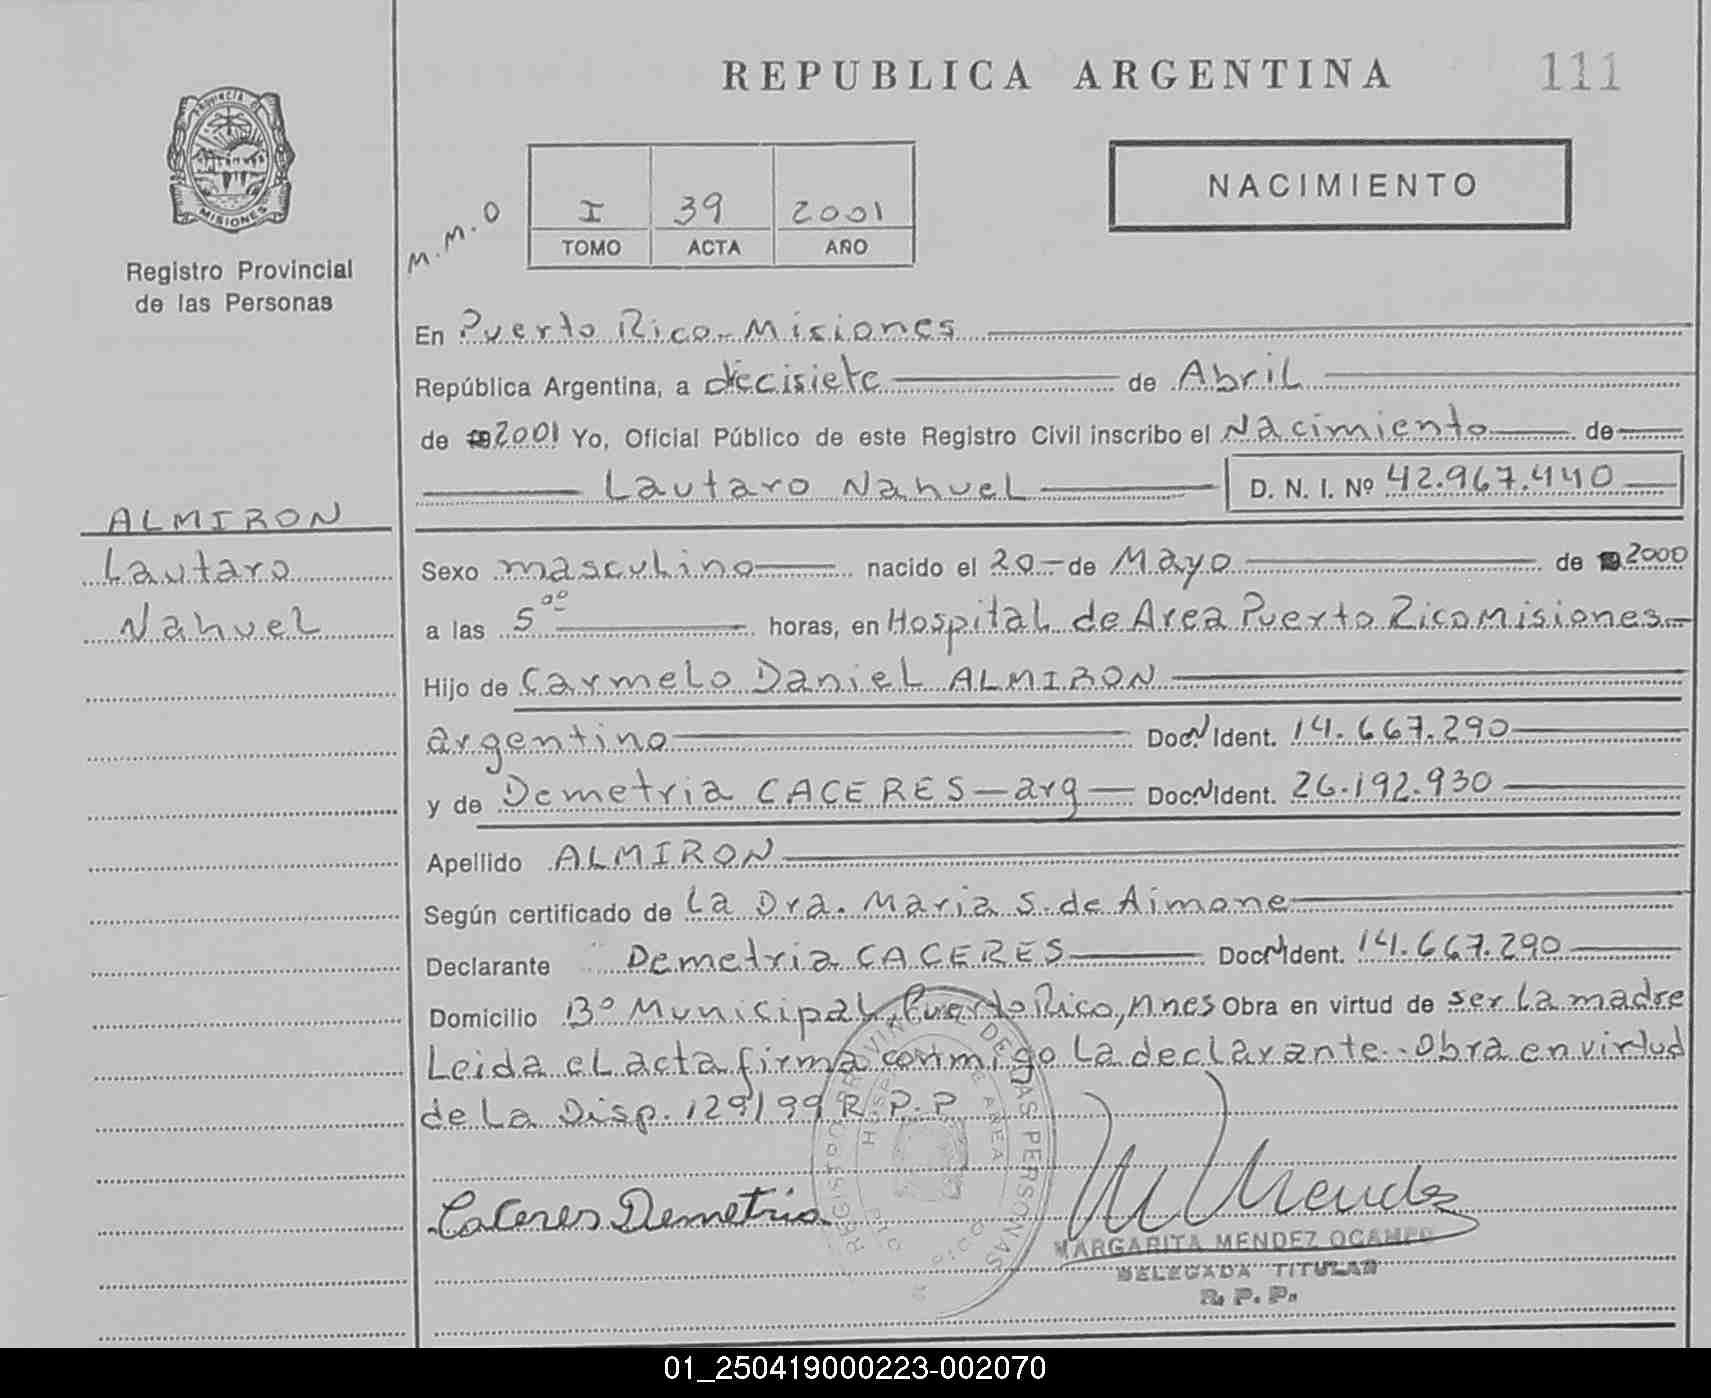 REPUBLICA ARGENTINA
111
PROVINCIA DE
MISIONES
Registro Provincial
de las Personas
M.M.O
I 39 2001
TOMO ACTA AÑO
NACIMIENTO
En Puerto Rico - Misiones
República Argentina, a diecisiete de Abril
de 2001 Yo, Oficial Público de este Registro Civil inscribo el Nacimiento de
Lautaro Nahuel D. N. I. Nº 42.967.440
ALMIRON
Lautaro
Nahuel
Sexo masculino nacido el 20 - de Mayo de 2000
a las 5 00 horas, en Hospital de Area Puerto Rico Misiones
Hijo de Carmelo Daniel ALMIRON
argentino Doc. N Ident. 14.667.290
y de Demetria CACERES - arg Doc. N Ident. 26.192.930
Apellido ALMIRON
Según certificado de La Dra. Maria S. de Aimone
Declarante Demetria CACERES Doc. N Ident. 14.667.290
Domicilio Bº Municipal, Puerto Rico, Mnes Obra en virtud de ser La madre
Leida el acta firma conmigo La declarante - Obra en virtud
de La Disp. 129/99 R.P.P
REGISTRO PROVINCIAL DE LAS PERSONAS
Caceres Demetria
M Mendez
MARGARITA MENDEZ OCAMPO
DELEGADA TITULAR
R. P. P.
01_250419000223-002070